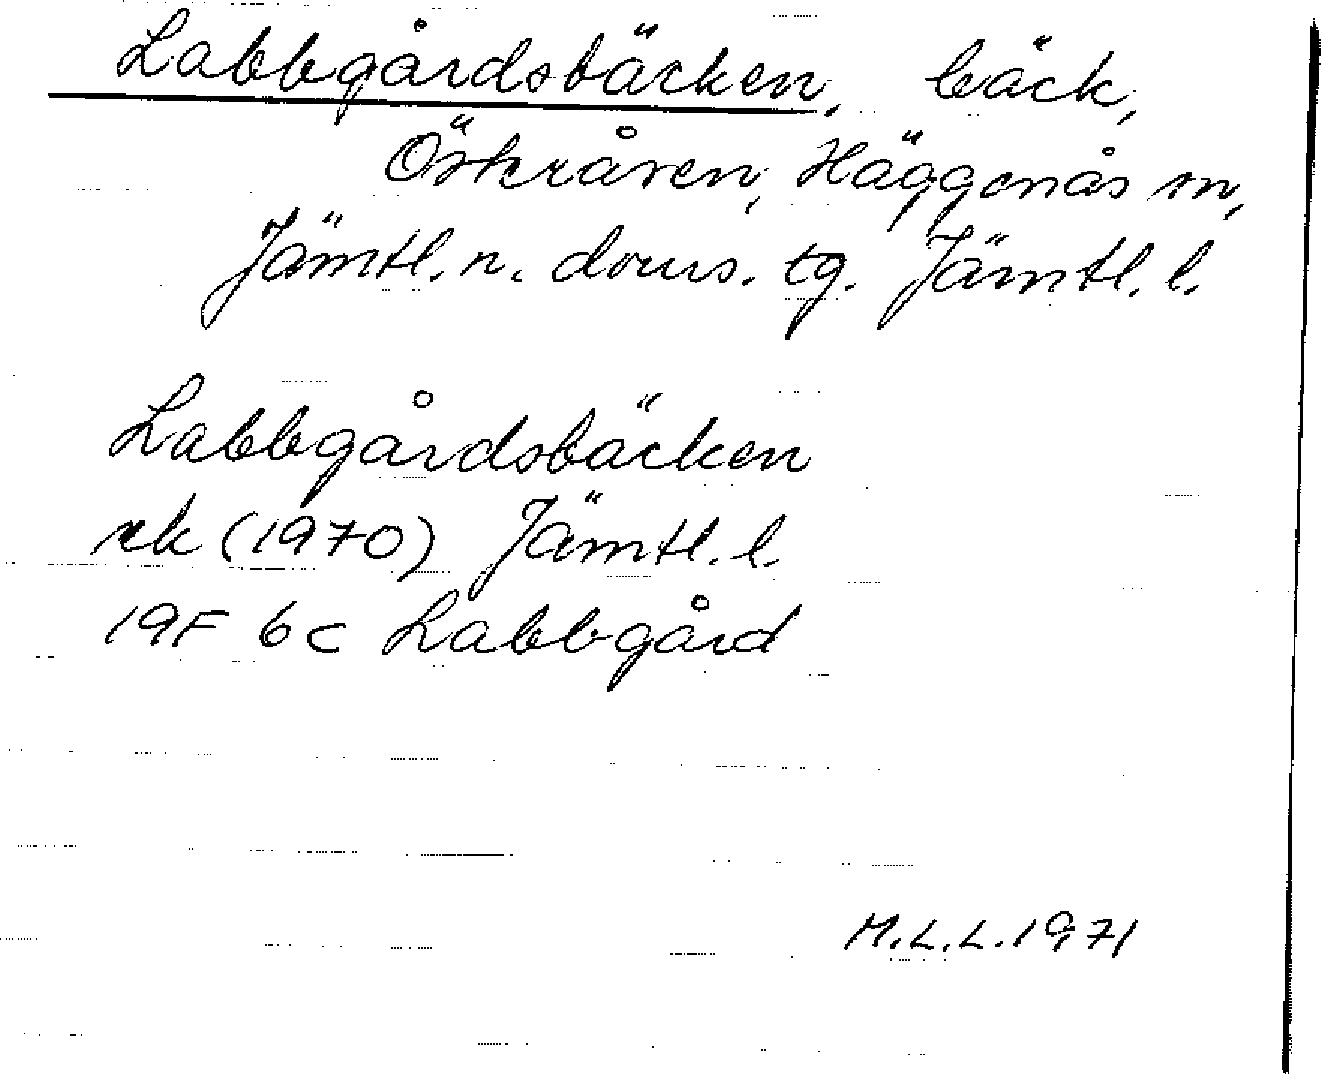 Labbgårdsbäcken, bäck,
Häggenås sn,
Jämtl. n. doms. tg. Jämtl. l.
Labbgårdsbäcken
rk (1970) Jämtl. l.
19F 6c Labbgård
M.L.L. 1971